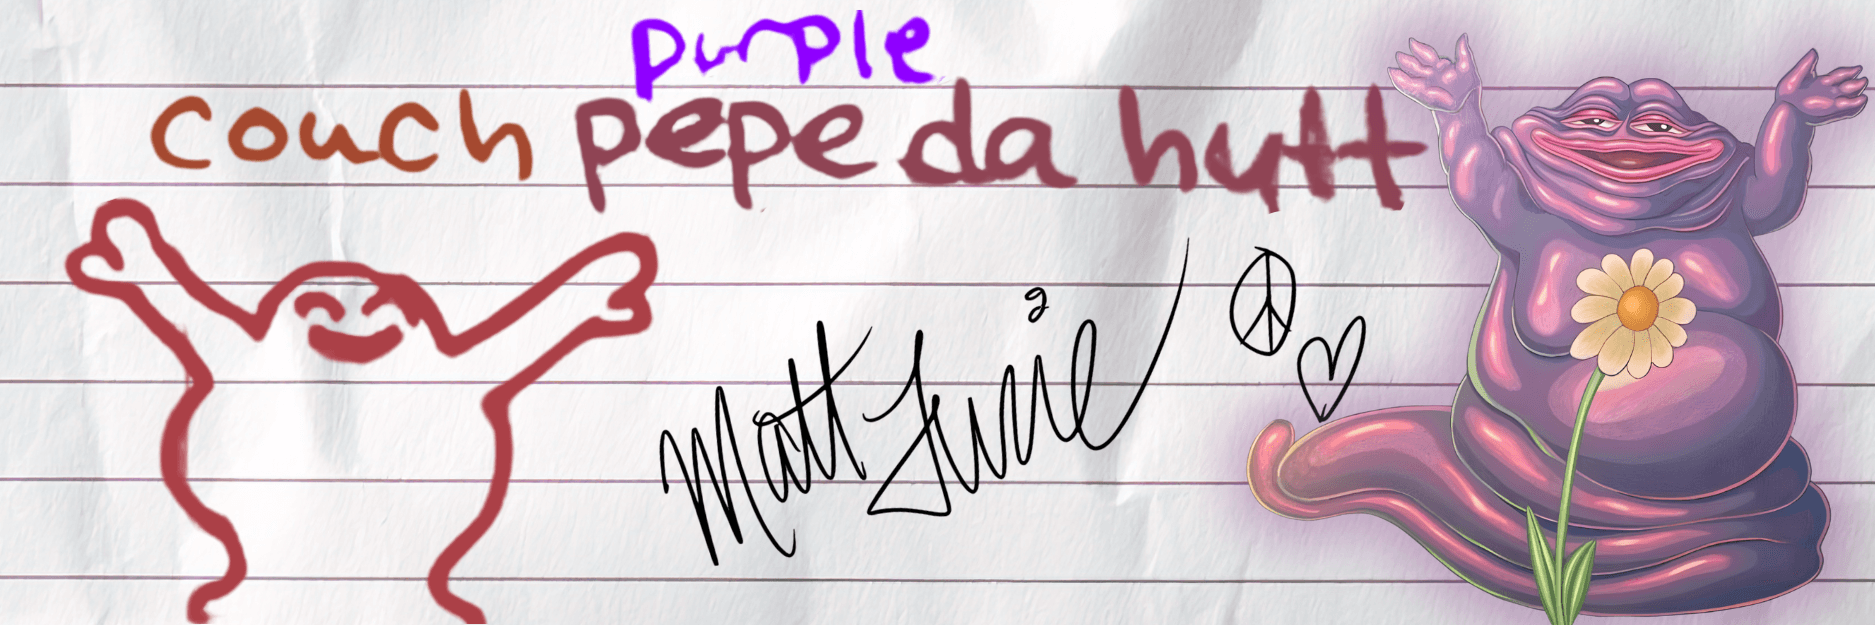 purple
couch pepe da hutt
Matt Furie